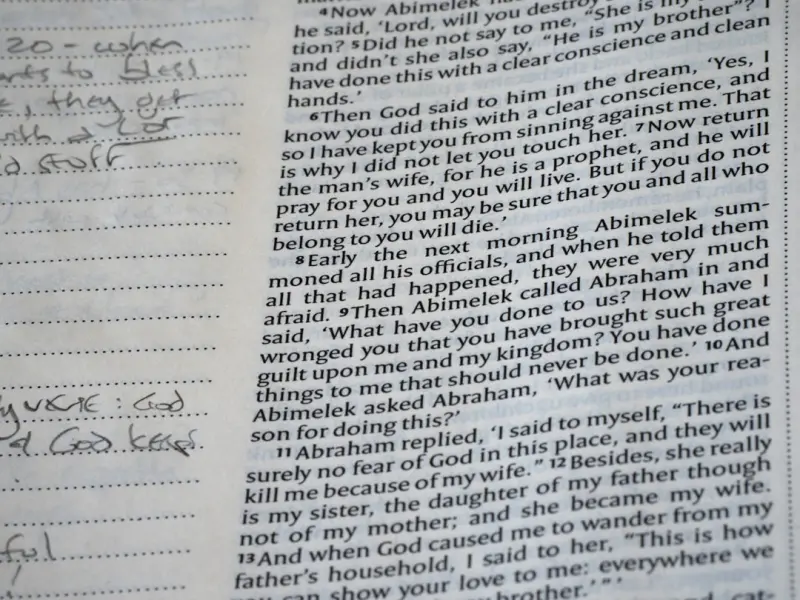 20 - when
to bless
, they get
with a lot
stuff
: God
God keeps
4 Now Abimelek had
he said, ‘Lord, will you destroy
tion? 5 Did he not say to me, “She is my
and didn’t she also say, “He is my brother”? I
have done this with a clear conscience and clean
hands.’
6 Then God said to him in the dream, ‘Yes, I
know you did this with a clear conscience, and
so I have kept you from sinning against me. That
is why I did not let you touch her. 7 Now return
the man’s wife, for he is a prophet, and he will
pray for you and you will live. But if you do not
return her, you may be sure that you and all who
belong to you will die.’
8 Early the next morning Abimelek sum-
moned all his officials, and when he told them
all that had happened, they were very much
afraid. 9 Then Abimelek called Abraham in and
said, ‘What have you done to us? How have I
wronged you that you have brought such great
guilt upon me and my kingdom? You have done
things to me that should never be done.’ 10 And
Abimelek asked Abraham, ‘What was your rea-
son for doing this?’
11 Abraham replied, ‘I said to myself, “There is
surely no fear of God in this place, and they will
kill me because of my wife.” 12 Besides, she really
is my sister, the daughter of my father though
not of my mother; and she became my wife.
13 And when God caused me to wander from my
father’s household, I said to her, “This is how
you can show your love to me: everywhere we
my brother.’”’